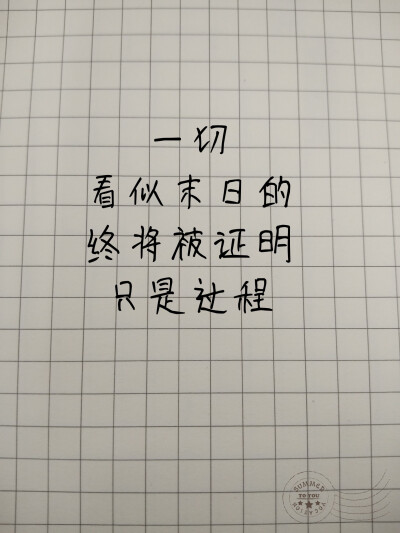 一切
看似末日的
终将被证明
只是过程
SUMMER
TO YOU
VACATION